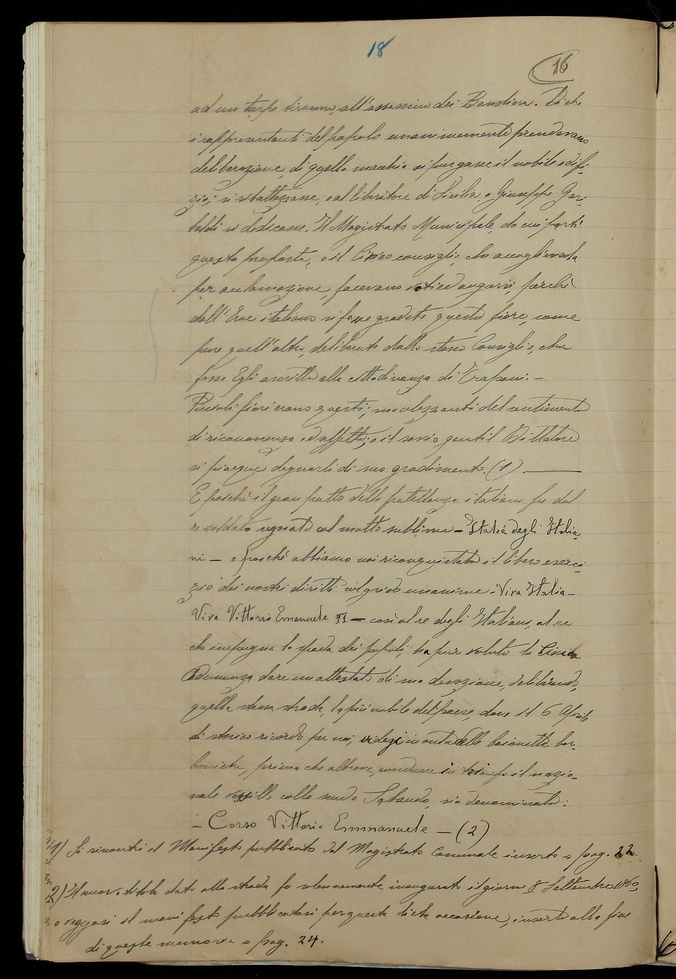 18
16
ad un turpe tiranno, all'assassino dei Bandiera. Di che
i rappresentanti del popolo unanimemente prendevano
deliberazione di quella macchia si purgasse il nobile edifi-
zio; si ristallasse, e al liberatore di Sicilia, a Giuseppe Gar-
baldi si dedicasse. Il Magistrato Municipale da cui partì
questa proposta, e il Civico consiglio, che accoglievala
per acclamazione, facevano voti ed augurii perchè
dall'Eroe italiano si fosse gradito questo fiore, come
pure quell'altro, deliberato dallo stesso Consiglio, che
fosse Egli ascritto alla cittadinanza di Trapani.—
Piccoli fiori erano questi; ma olezzanti del sentimento
di riconoscenza ed affetto; e il gentil Dittatore
si piacque degnarli di suo gradimento. (1).—
E poichè il gran patto della fratellanza italiana fu dal
re soldato segnato col motto sublime — Italia degli Italia-
ni — e poichè abbiamo noi riconquistato il libero eserci-
zio dei nostri diritti col grido unanime: Viva Italia —
Viva Vittorio Emanuele II — così al re degli Italiani, al re
che impugna la spada dei popoli, ha pure voluto la Civica
Adunanza dare un attestato di sua devozione, deliberando,
quella stessa strada, la più nobile del paese, dove il 6 Aprile
di storico ricordo per noi, videsi in onta alle baionette bor-
boniche, prima che altrove, condurre in trionfo il nazio-
nale vessillo collo scudo Sabaudo, sia denominata:
— Corso Vittorio Emmanuele — (2)
1) Si riscontri il Manifesto pubblicato dal Magistrato Comunale inserto a pag. 22
2) Il nuovo titolo dato alla strada fu solennemente inaugurato il giorno 8 Settembre 1860,
e veggasi il manifesto pubblicatosi per questa lieta occasione, inserto alla fine
di queste memorie a pag. 24.